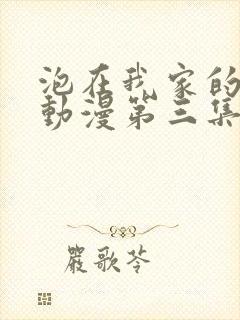 泡在我家的
動漫第三集
嚴歌苓